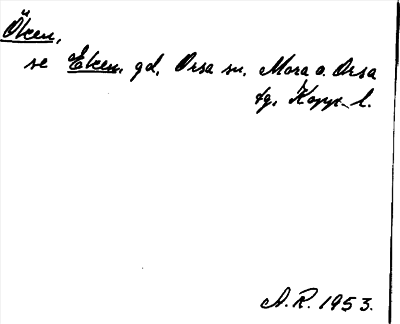 Öken,
se Eken, gd, Orsa sn, Mora o. Orsa
tg, Kopp. l.
A. R. 1953.